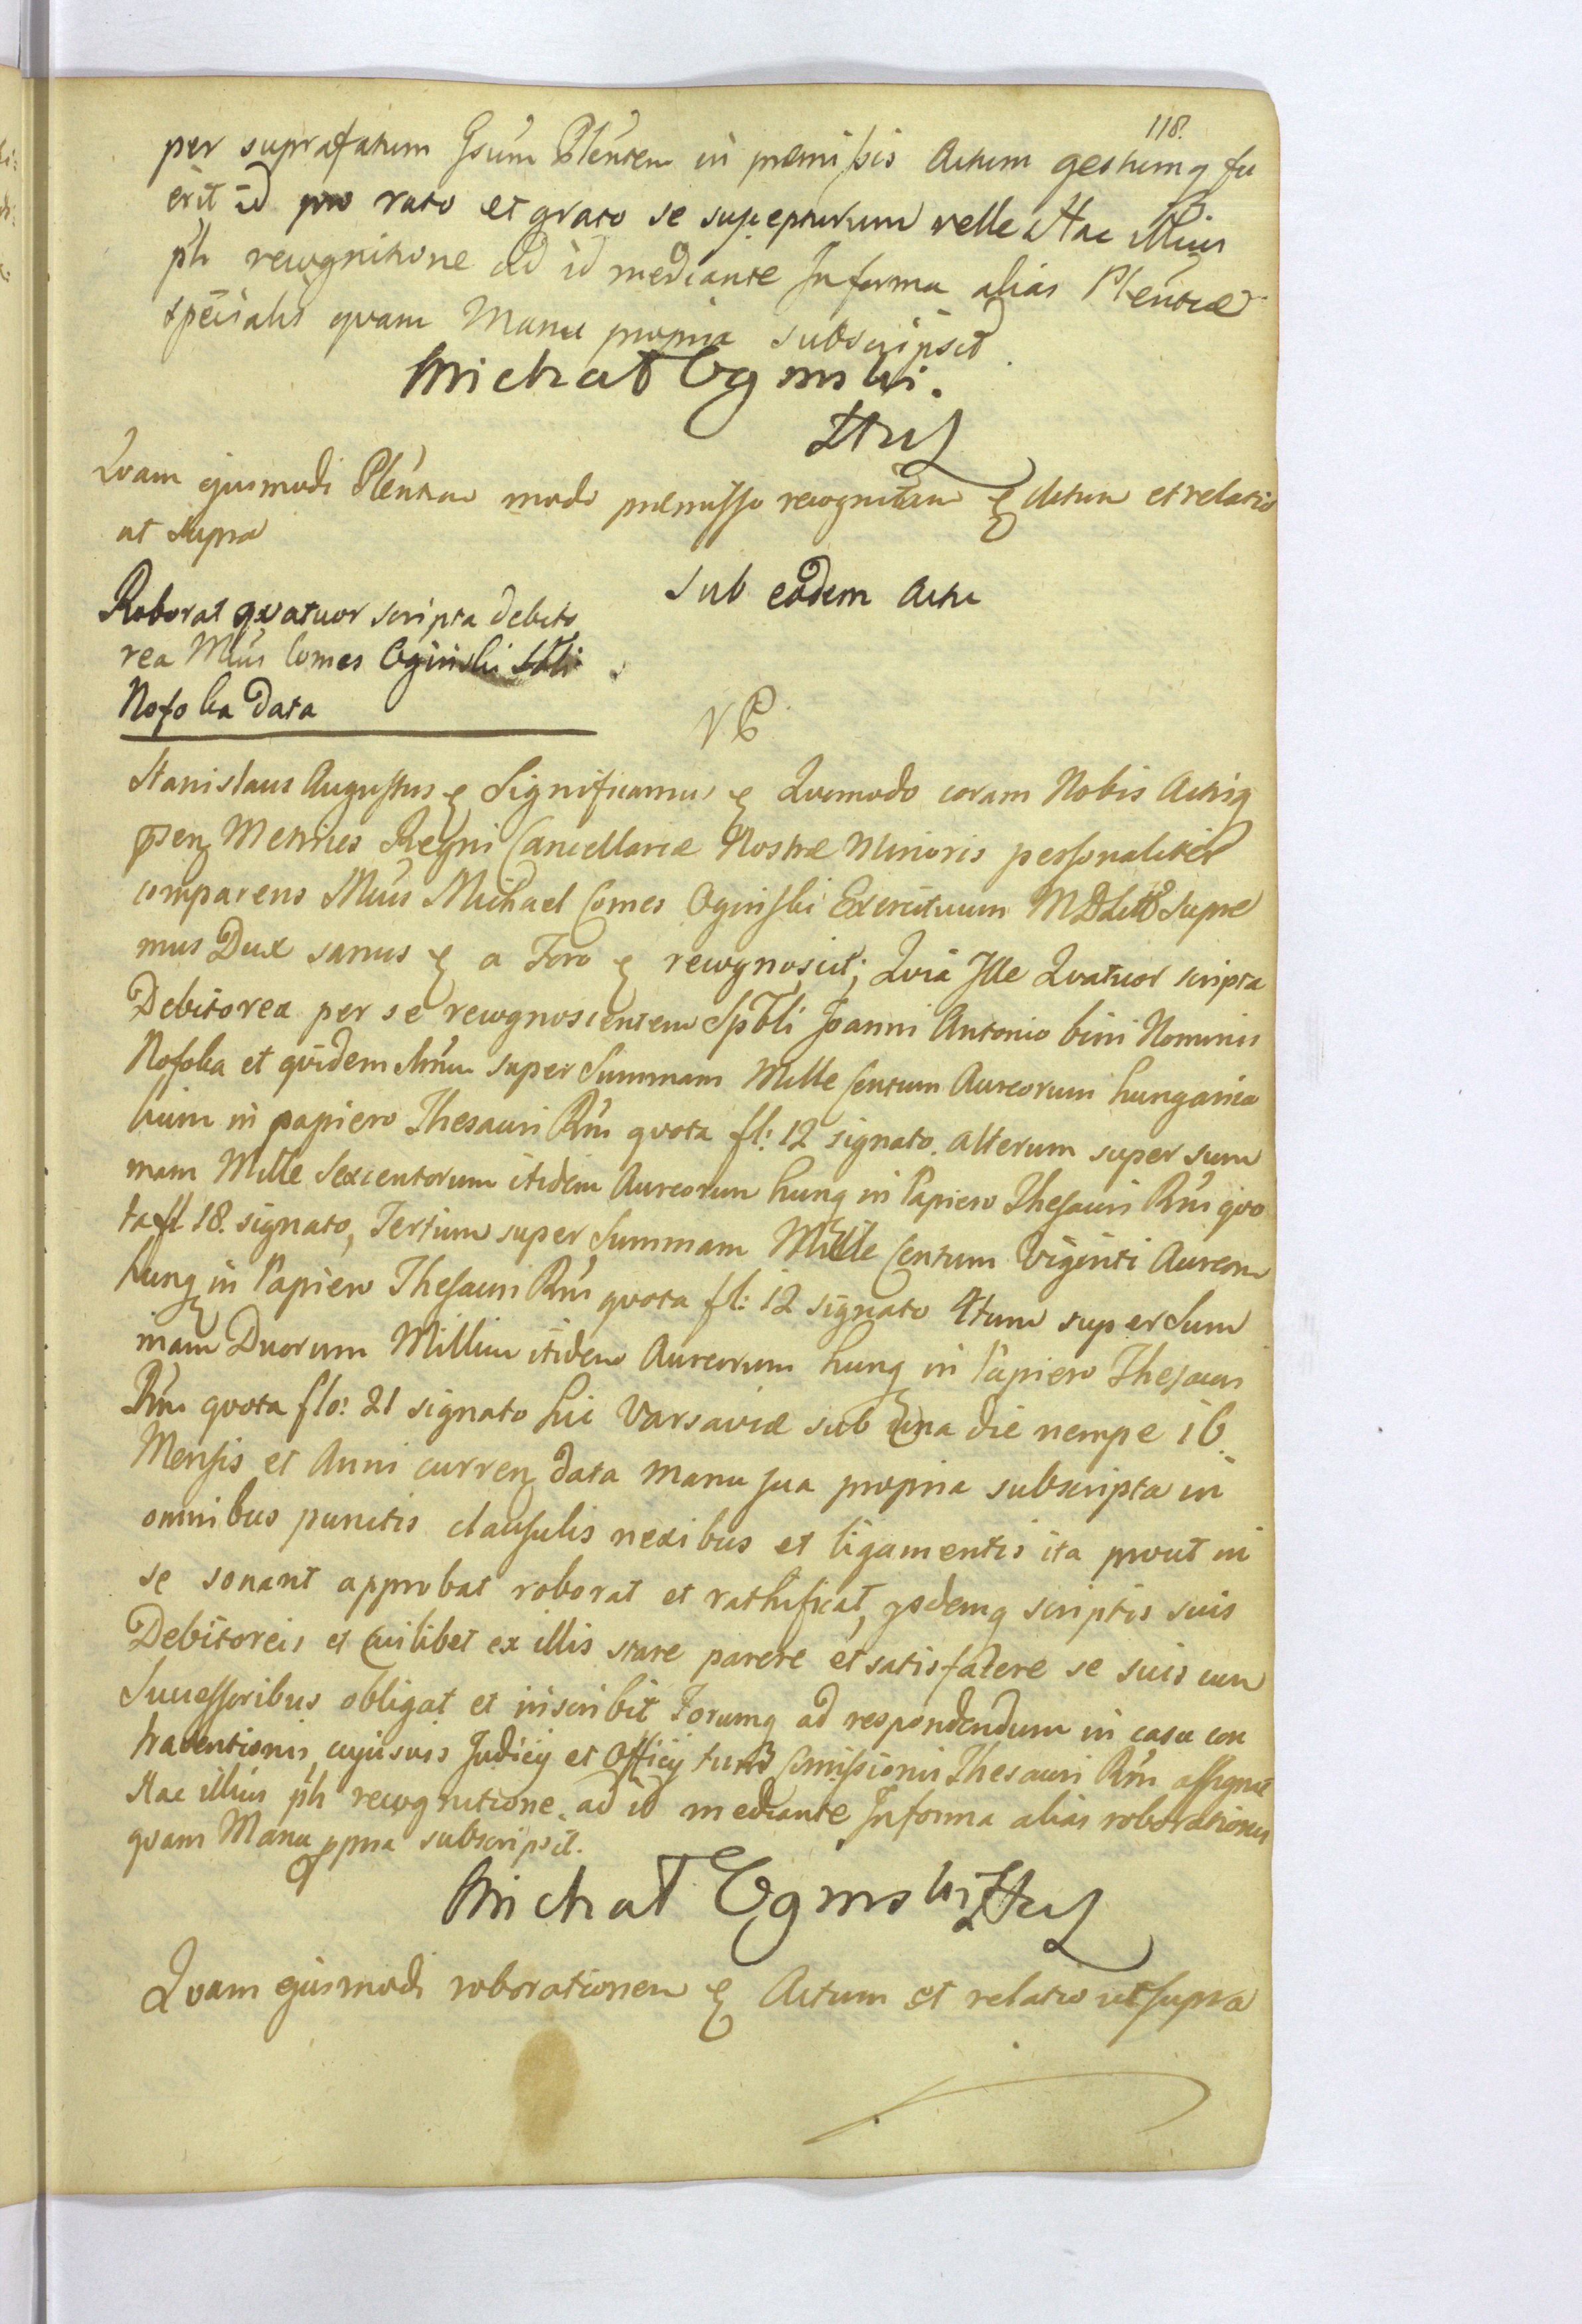 118.
per suprafatum Gsum Pltentem in præmissis Actum gestumq fu
erit id pro rato et grato se suscepturum velle Hac Illius
pñti recognitione ad id mediante In forma alias Plentiæ
specialis qvam Manu propria subscripsit.
Michał Ogiński.
HWL
Qvam ejusmodi Pleñtiam modo præmisso recognitam & Actum et relatio
ut supra
Sub eodem Actu
Roborat qvatuor scripta debito
rea Mcus Comes Oginski Spbli
Nofok a data
VP
Stanislaus Augustus & Significamus & Qvomodo coram Nobis Actisq
psen Metrices Regni Cancellariæ Nostræ Minoris personaliter
comparens Mcus Michael Comes Oginski Exercituum MDLitt Supre
mus Dux sanus & a Foro & recognoscit; Qvia Ille Qvatuor scripta
Debitorea per se recognoscentem Spbli Joanni Antonio bini Nominis
Nofok a et qvidem Unum super Summam Mille Centum Aureorum hungarica
lium in papiero Thesauri Rni qvota fl: 12 signato. alterum super sum
mam Mille Sexcentorum itidem Aureorum hung in Papiero Thesauri Rni qvo
ta fl 18. signato, Tertium super Summam Mille Centum Viginti Aureoru
hung in Papiero Thesauri Rni qvota fl: 12 signato 4tum super Sum
mam Duorum Millium itidem Aureorum hung in Papiero Thesauri
Rni qvota flo: 21 signato hic Varsaviæ sub una die nempe 16.
Mensis et Anni curren data manu sua propria subscripta in
omnibus punctis clausulis nexibus et ligamentis ita prout in
se sonant approbat roborat et rathificat, ysdemq scriptis suis
Debitoreis et cuilibet ex illis stare parere et satisfacere se suis cum
Successoribus obligat et inscribit Forumq ad respondendum in casu con
traventionis, cujusvis Judicij et Officij tum Comissionis Thesauri Rni assignat
Hac illius pñti recognitione ad id mediante In forma alias roborationis
qvam Manu ppria subscripsit.
Michał Ogiński HWL
Qvam ejusmodi roborationem & Actum et relatio ut supra